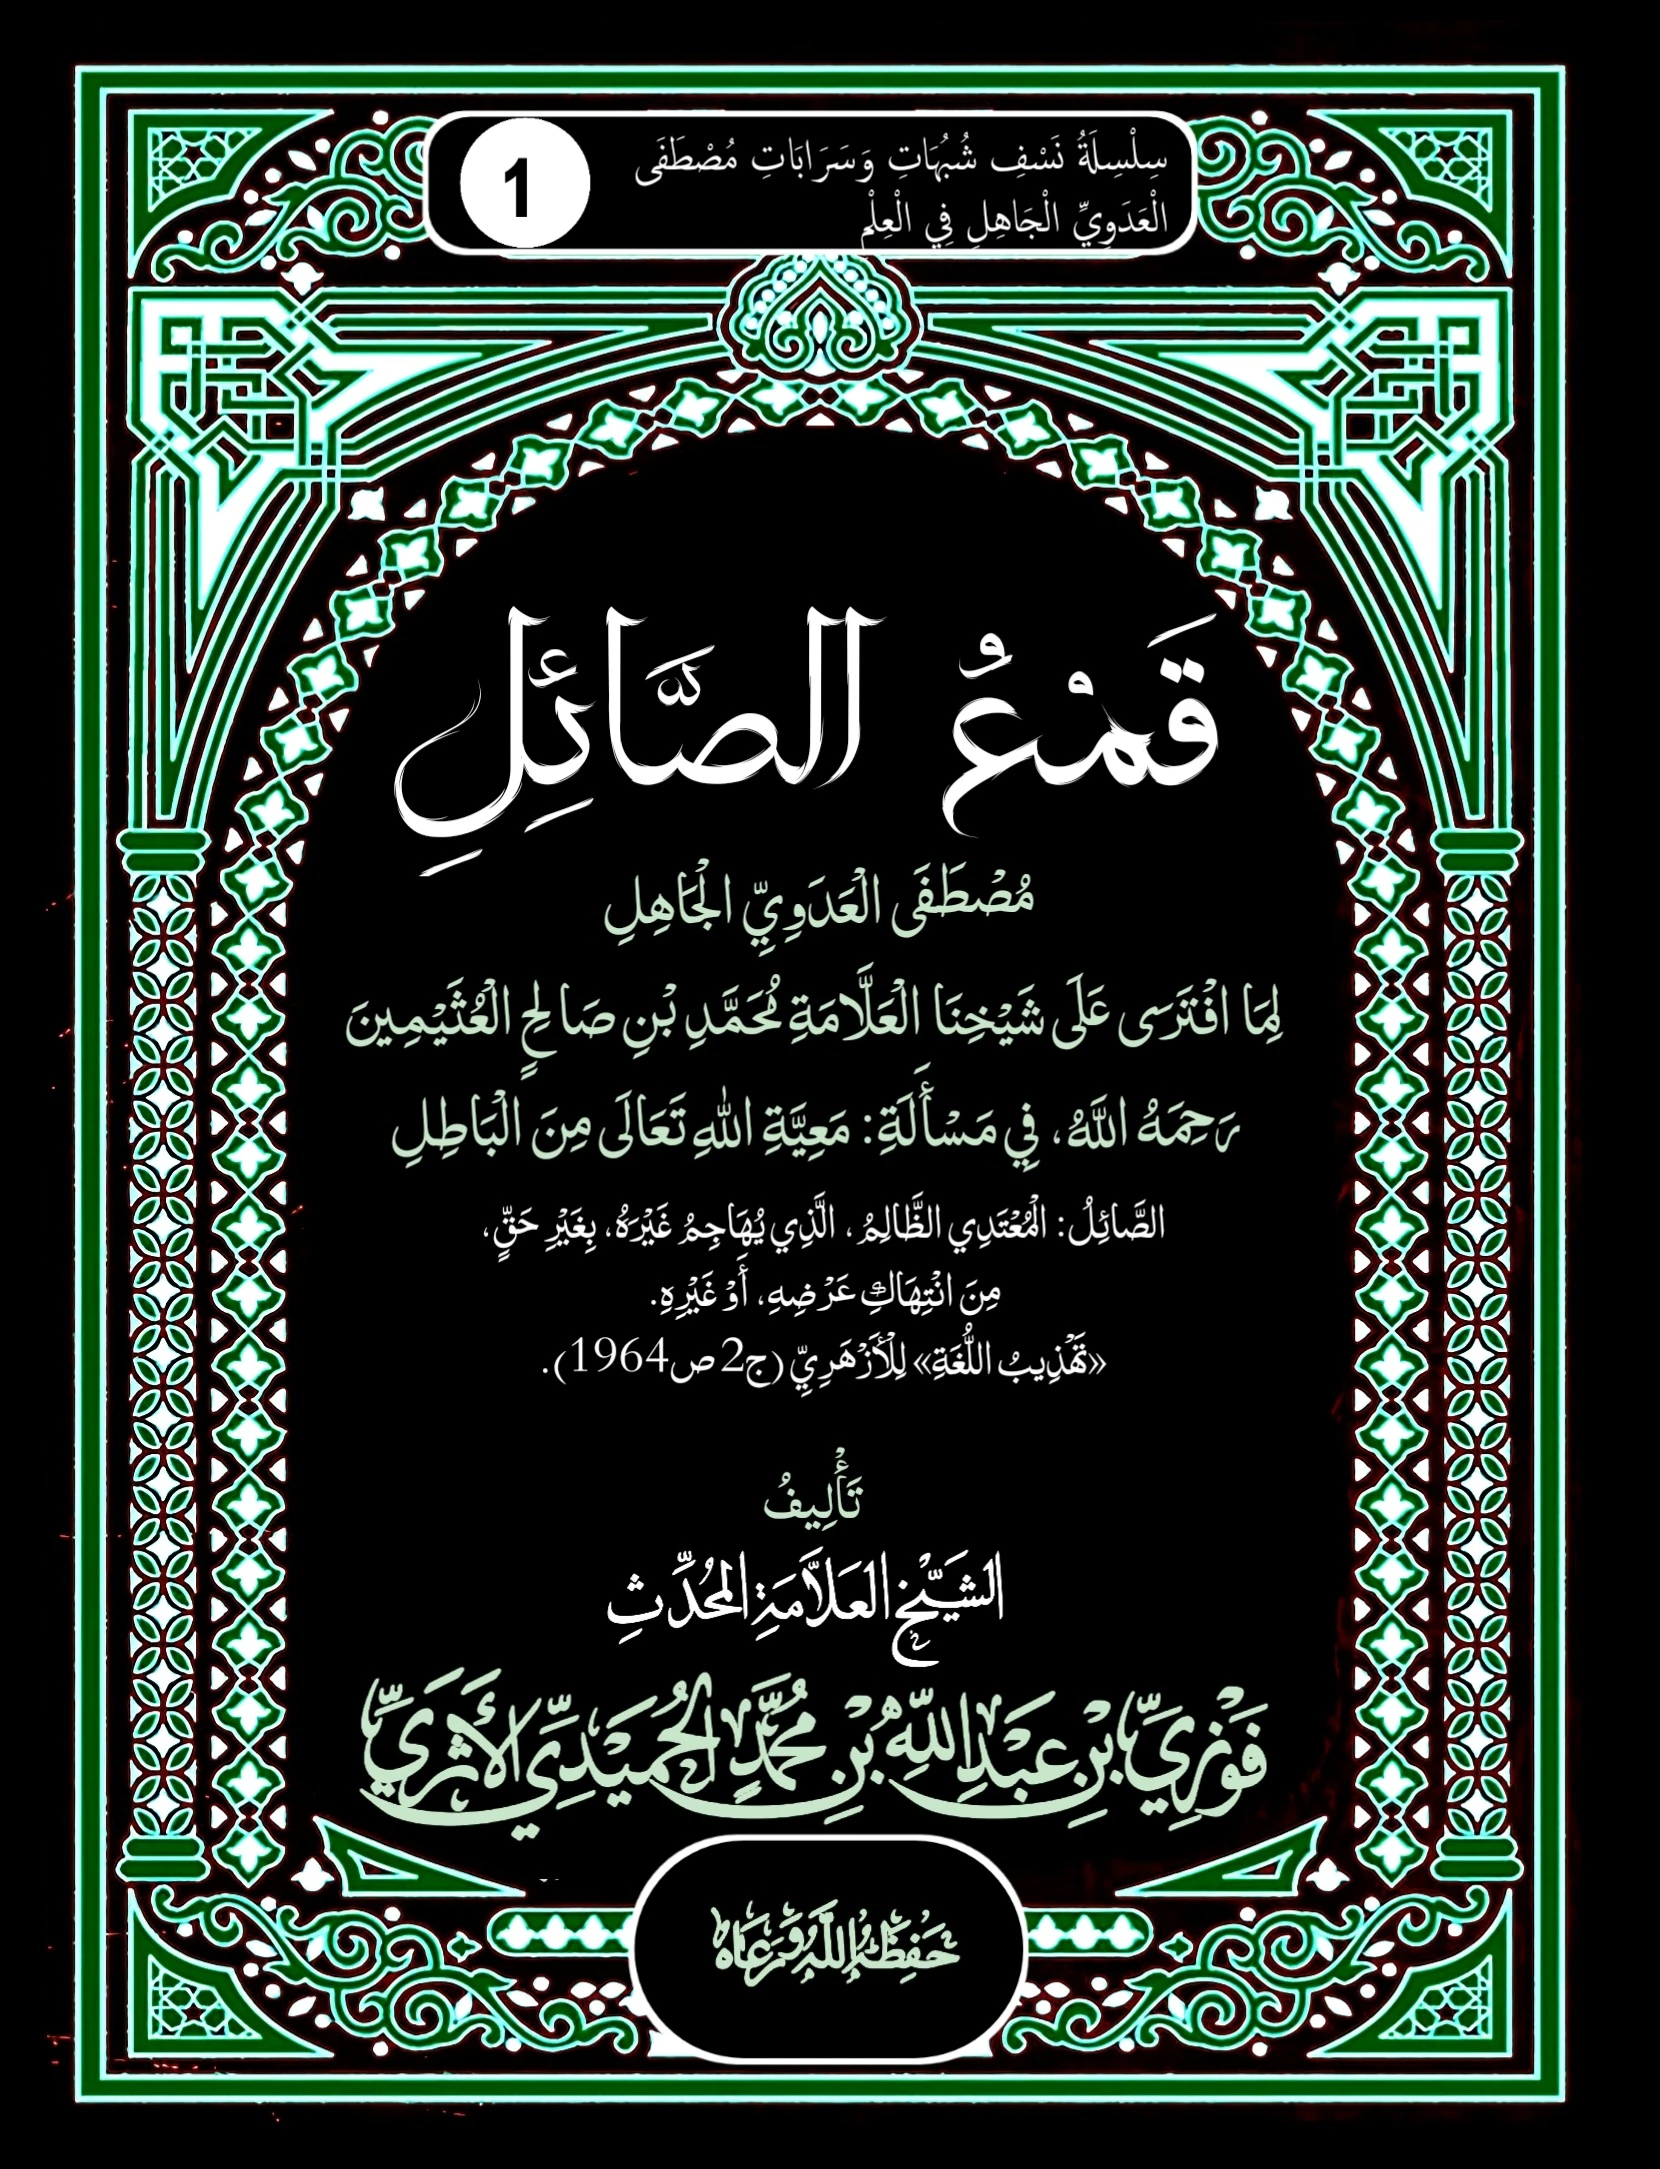 سِلْسِلَةُ نَسْفِ شُبُهَاتِ وَسَرَابَاتِ مُصْطَفَى
الْعَدَوِيِّ الْجَاهِلِ فِي الْعِلْمِ
1
قَمْعُ الصَّائِلِ
مُصْطَفَى الْعَدَوِيِّ الْجَاهِلِ
لِمَا افْتَرَى عَلَى شَيْخِنَا الْعَلَّامَةِ مُحَمَّدِ بْنِ صَالِحٍ الْعُثَيْمِينَ
رَحِمَهُ اللَّهُ، فِي مَسْأَلَةِ: مَعِيَّةِ اللهِ تَعَالَى مِنَ الْبَاطِلِ
الصَّائِلُ: الْمُعْتَدِي الظَّالِمُ، الَّذِي يُهَاجِمُ غَيْرَهُ، بِغَيْرِ حَقٍّ،
مِنَ انْتِهَاكِ عَرْضِهِ، أَوْ غَيْرِهِ.
«تَهْذِيبُ اللُّغَةِ» لِلْأَزْهَرِيِّ (ج2 ص1964).
تَأْلِيفُ
الشَّيْخِ العَلاَّمَةِ المُحَدِّثِ
فَوْزِيِّ بْنِ عَبْدِ اللَّهِ بْنِ مُحَمَّدٍ الحُمَيْدِيِّ الأَثَرِيِّ
حَفِظَهُ اللَّهُ وَرَعَاهُ